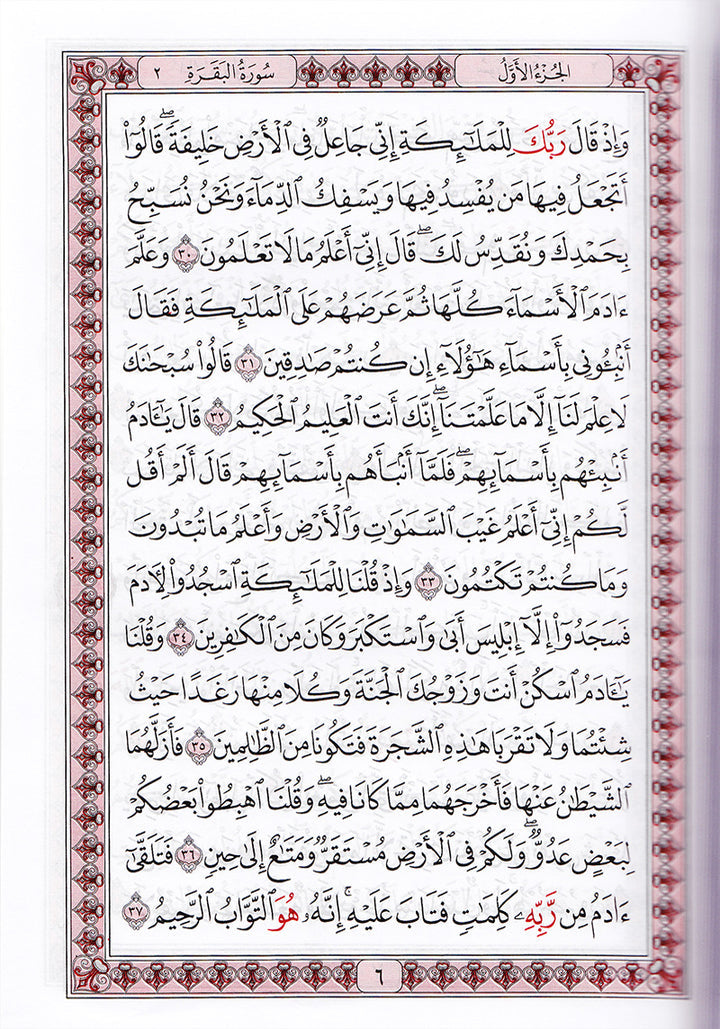 الجزء الأول
سورة البقرة ٢
وَإِذْ قَالَ رَبُّكَ لِلْمَلَٰٓئِكَةِ إِنِّى جَاعِلٌ فِى ٱلْأَرْضِ خَلِيفَةً ۖ قَالُوٓا۟
أَتَجْعَلُ فِيهَا مَن يُفْسِدُ فِيهَا وَيَسْفِكُ ٱلدِّمَآءَ وَنَحْنُ نُسَبِّحُ
بِحَمْدِكَ وَنُقَدِّسُ لَكَ ۖ قَالَ إِنِّىٓ أَعْلَمُ مَا لَا تَعْلَمُونَ ٣٠ وَعَلَّمَ
ءَادَمَ ٱلْأَسْمَآءَ كُلَّهَا ثُمَّ عَرَضَهُمْ عَلَى ٱلْمَلَٰٓئِكَةِ فَقَالَ
أَنۢبِـُٔونِى بِأَسْمَآءِ هَٰٓؤُلَآءِ إِن كُنتُمْ صَٰدِقِينَ ٣١ قَالُوا۟ سُبْحَٰنَكَ
لَا عِلْمَ لَنَآ إِلَّا مَا عَلَّمْتَنَآ ۖ إِنَّكَ أَنتَ ٱلْعَلِيمُ ٱلْحَكِيمُ ٣٢ قَالَ يَٰٓـَٔادَمُ
أَنۢبِئْهُم بِأَسْمَآئِهِمْ ۖ فَلَمَّآ أَنۢبَأَهُم بِأَسْمَآئِهِمْ قَالَ أَلَمْ أَقُل
لَّكُمْ إِنِّىٓ أَعْلَمُ غَيْبَ ٱلسَّمَٰوَٰتِ وَٱلْأَرْضِ وَأَعْلَمُ مَا تُبْدُونَ
وَمَا كُنتُمْ تَكْتُمُونَ ٣٣ وَإِذْ قُلْنَا لِلْمَلَٰٓئِكَةِ ٱسْجُدُوا۟ لِءَادَمَ
فَسَجَدُوٓا۟ إِلَّآ إِبْلِيسَ أَبَىٰ وَٱسْتَكْبَرَ وَكَانَ مِنَ ٱلْكَٰفِرِينَ ٣٤ وَقُلْنَا
يَٰٓـَٔادَمُ ٱسْكُنْ أَنتَ وَزَوْجُكَ ٱلْجَنَّةَ وَكُلَا مِنْهَا رَغَدًا حَيْثُ
شِئْتُمَا وَلَا تَقْرَبَا هَٰذِهِ ٱلشَّجَرَةَ فَتَكُونَا مِنَ ٱلظَّٰلِمِينَ ٣٥ فَأَزَلَّهُمَا
ٱلشَّيْطَٰنُ عَنْهَا فَأَخْرَجَهُمَا مِمَّا كَانَا فِيهِ ۖ وَقُلْنَا ٱهْبِطُوا۟ بَعْضُكُمْ
لِبَعْضٍ عَدُوٌّ ۖ وَلَكُمْ فِى ٱلْأَرْضِ مُسْتَقَرٌّ وَمَتَٰعٌ إِلَىٰ حِينٍ ٣٦ فَتَلَقَّىٰٓ
ءَادَمُ مِن رَّبِّهِۦ كَلِمَٰتٍ فَتَابَ عَلَيْهِ ۚ إِنَّهُۥ هُوَ ٱلتَّوَّابُ ٱلرَّحِيمُ ٣٧
٦